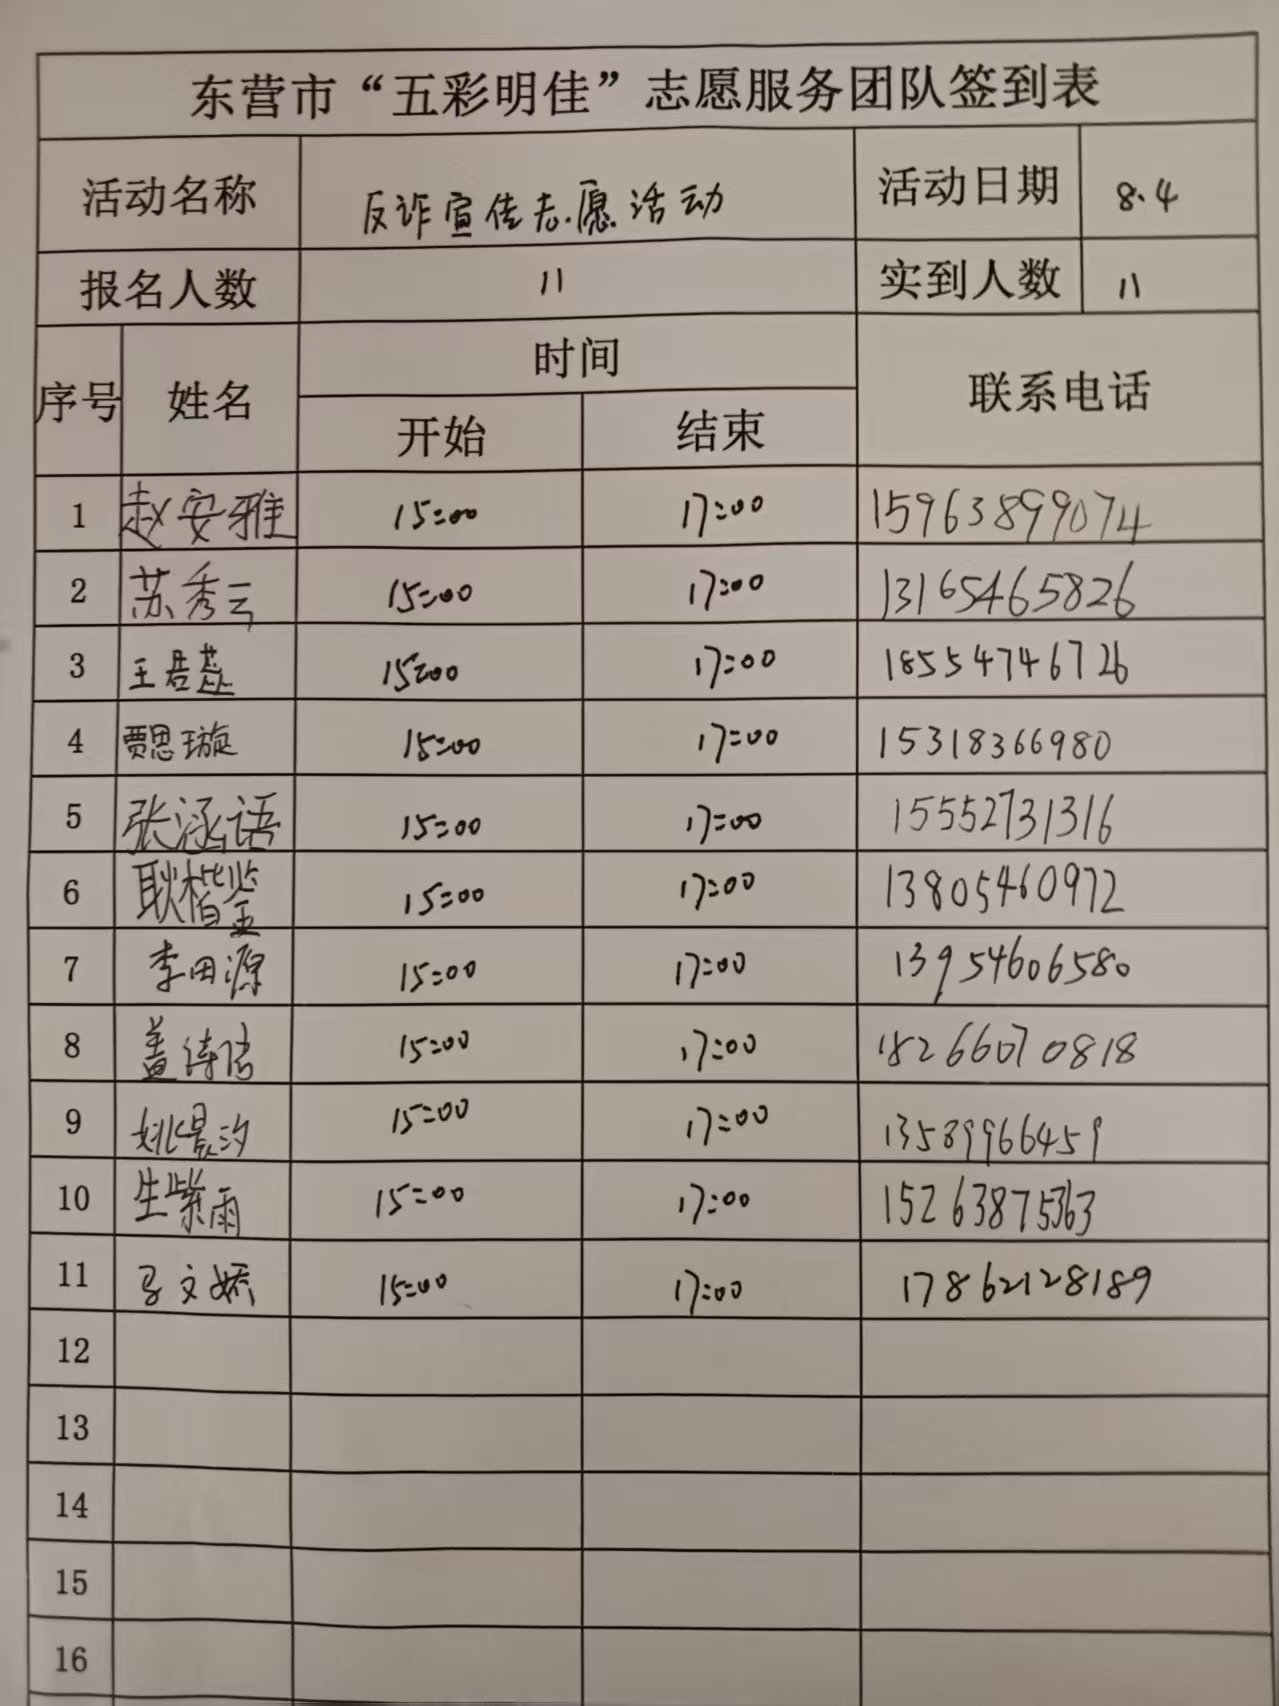 东营市“五彩明佳”志愿服务团队签到表
活动名称 反诈宣传志愿活动 活动日期 8.4
报名人数 11 实到人数 11
序号 姓名 时间 联系电话
开始 结束
1 赵安雅 15:00 17:00 15963899074
2 苏秀云 15:00 17:00 13165465826
3 王君蕊 15:00 17:00 18554746726
4 贾思璇 15:00 17:00 15318366980
5 张涵语 15:00 17:00 15552731316
6 耿楷鉴 15:00 17:00 13805460972
7 李田源 15:00 17:00 13954606580
8 盖诗 15:00 17:00 18266070818
9 姚昊汐 15:00 17:00 13589966459
10 生紫雨 15:00 17:00 15263875363
11 马文娇 15:00 17:00 17862128189
12
13
14
15
16